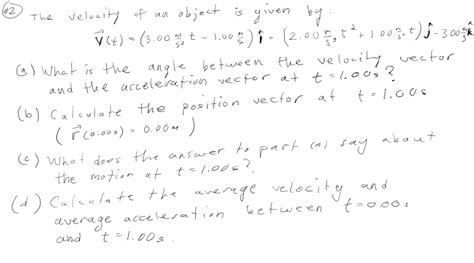 #2) The velocity of an object is given by:
v⃗(t) = (3.00 m/s² t - 1.00 m/s) î + (2.00 m/s³ t² + 1.00 m/s² t) ĵ - 3.00 m/s k̂
(a) What is the angle between the velocity vector
and the acceleration vector at t = 1.00s?
(b) Calculate the position vector at t = 1.00s
( r⃗(0.00s) = 0.00m )
(c) What does the answer to part (a) say about
the motion at t = 1.00s?
(d) Calculate the average velocity and
average acceleration between t = 0.00s
and t = 1.00s.